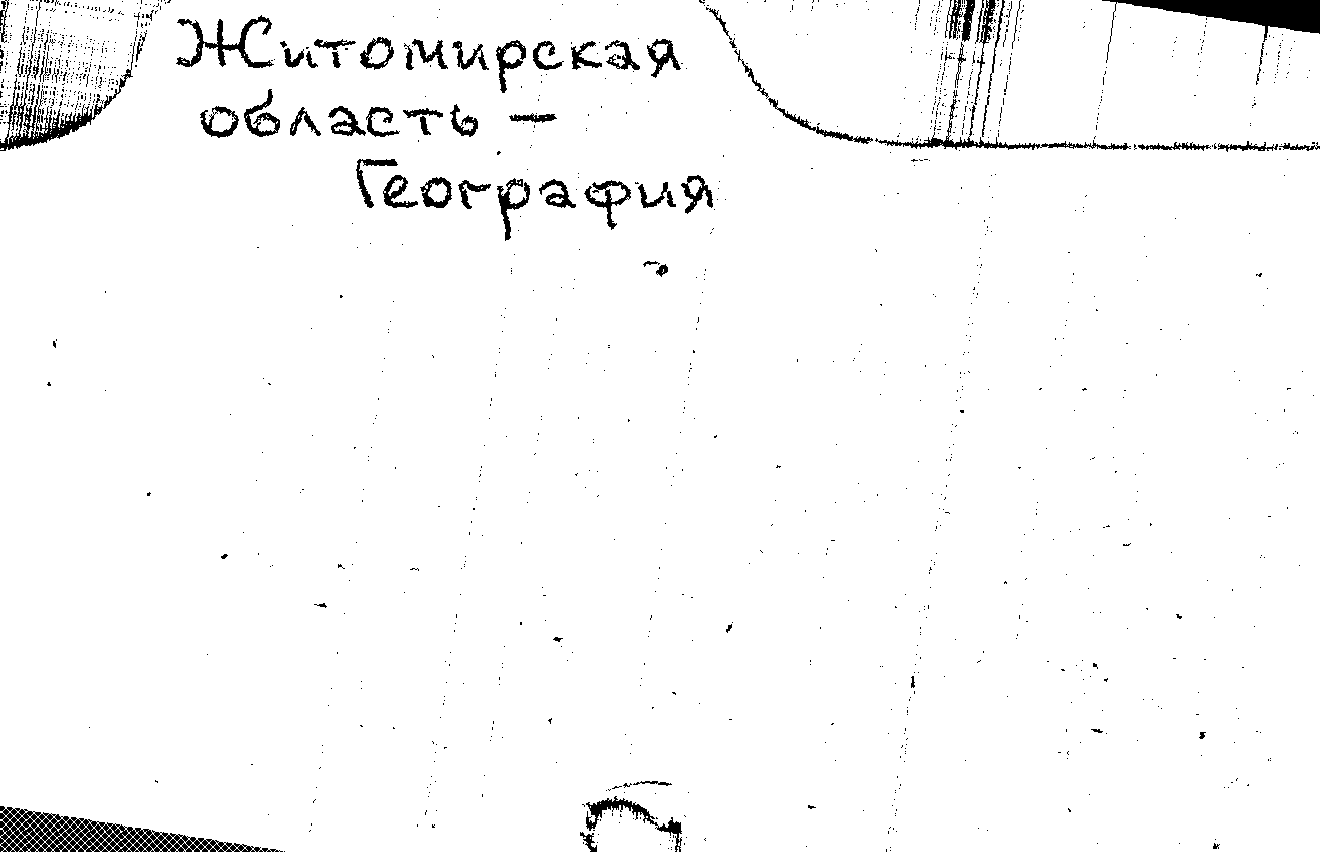 Житомирская
область –
География